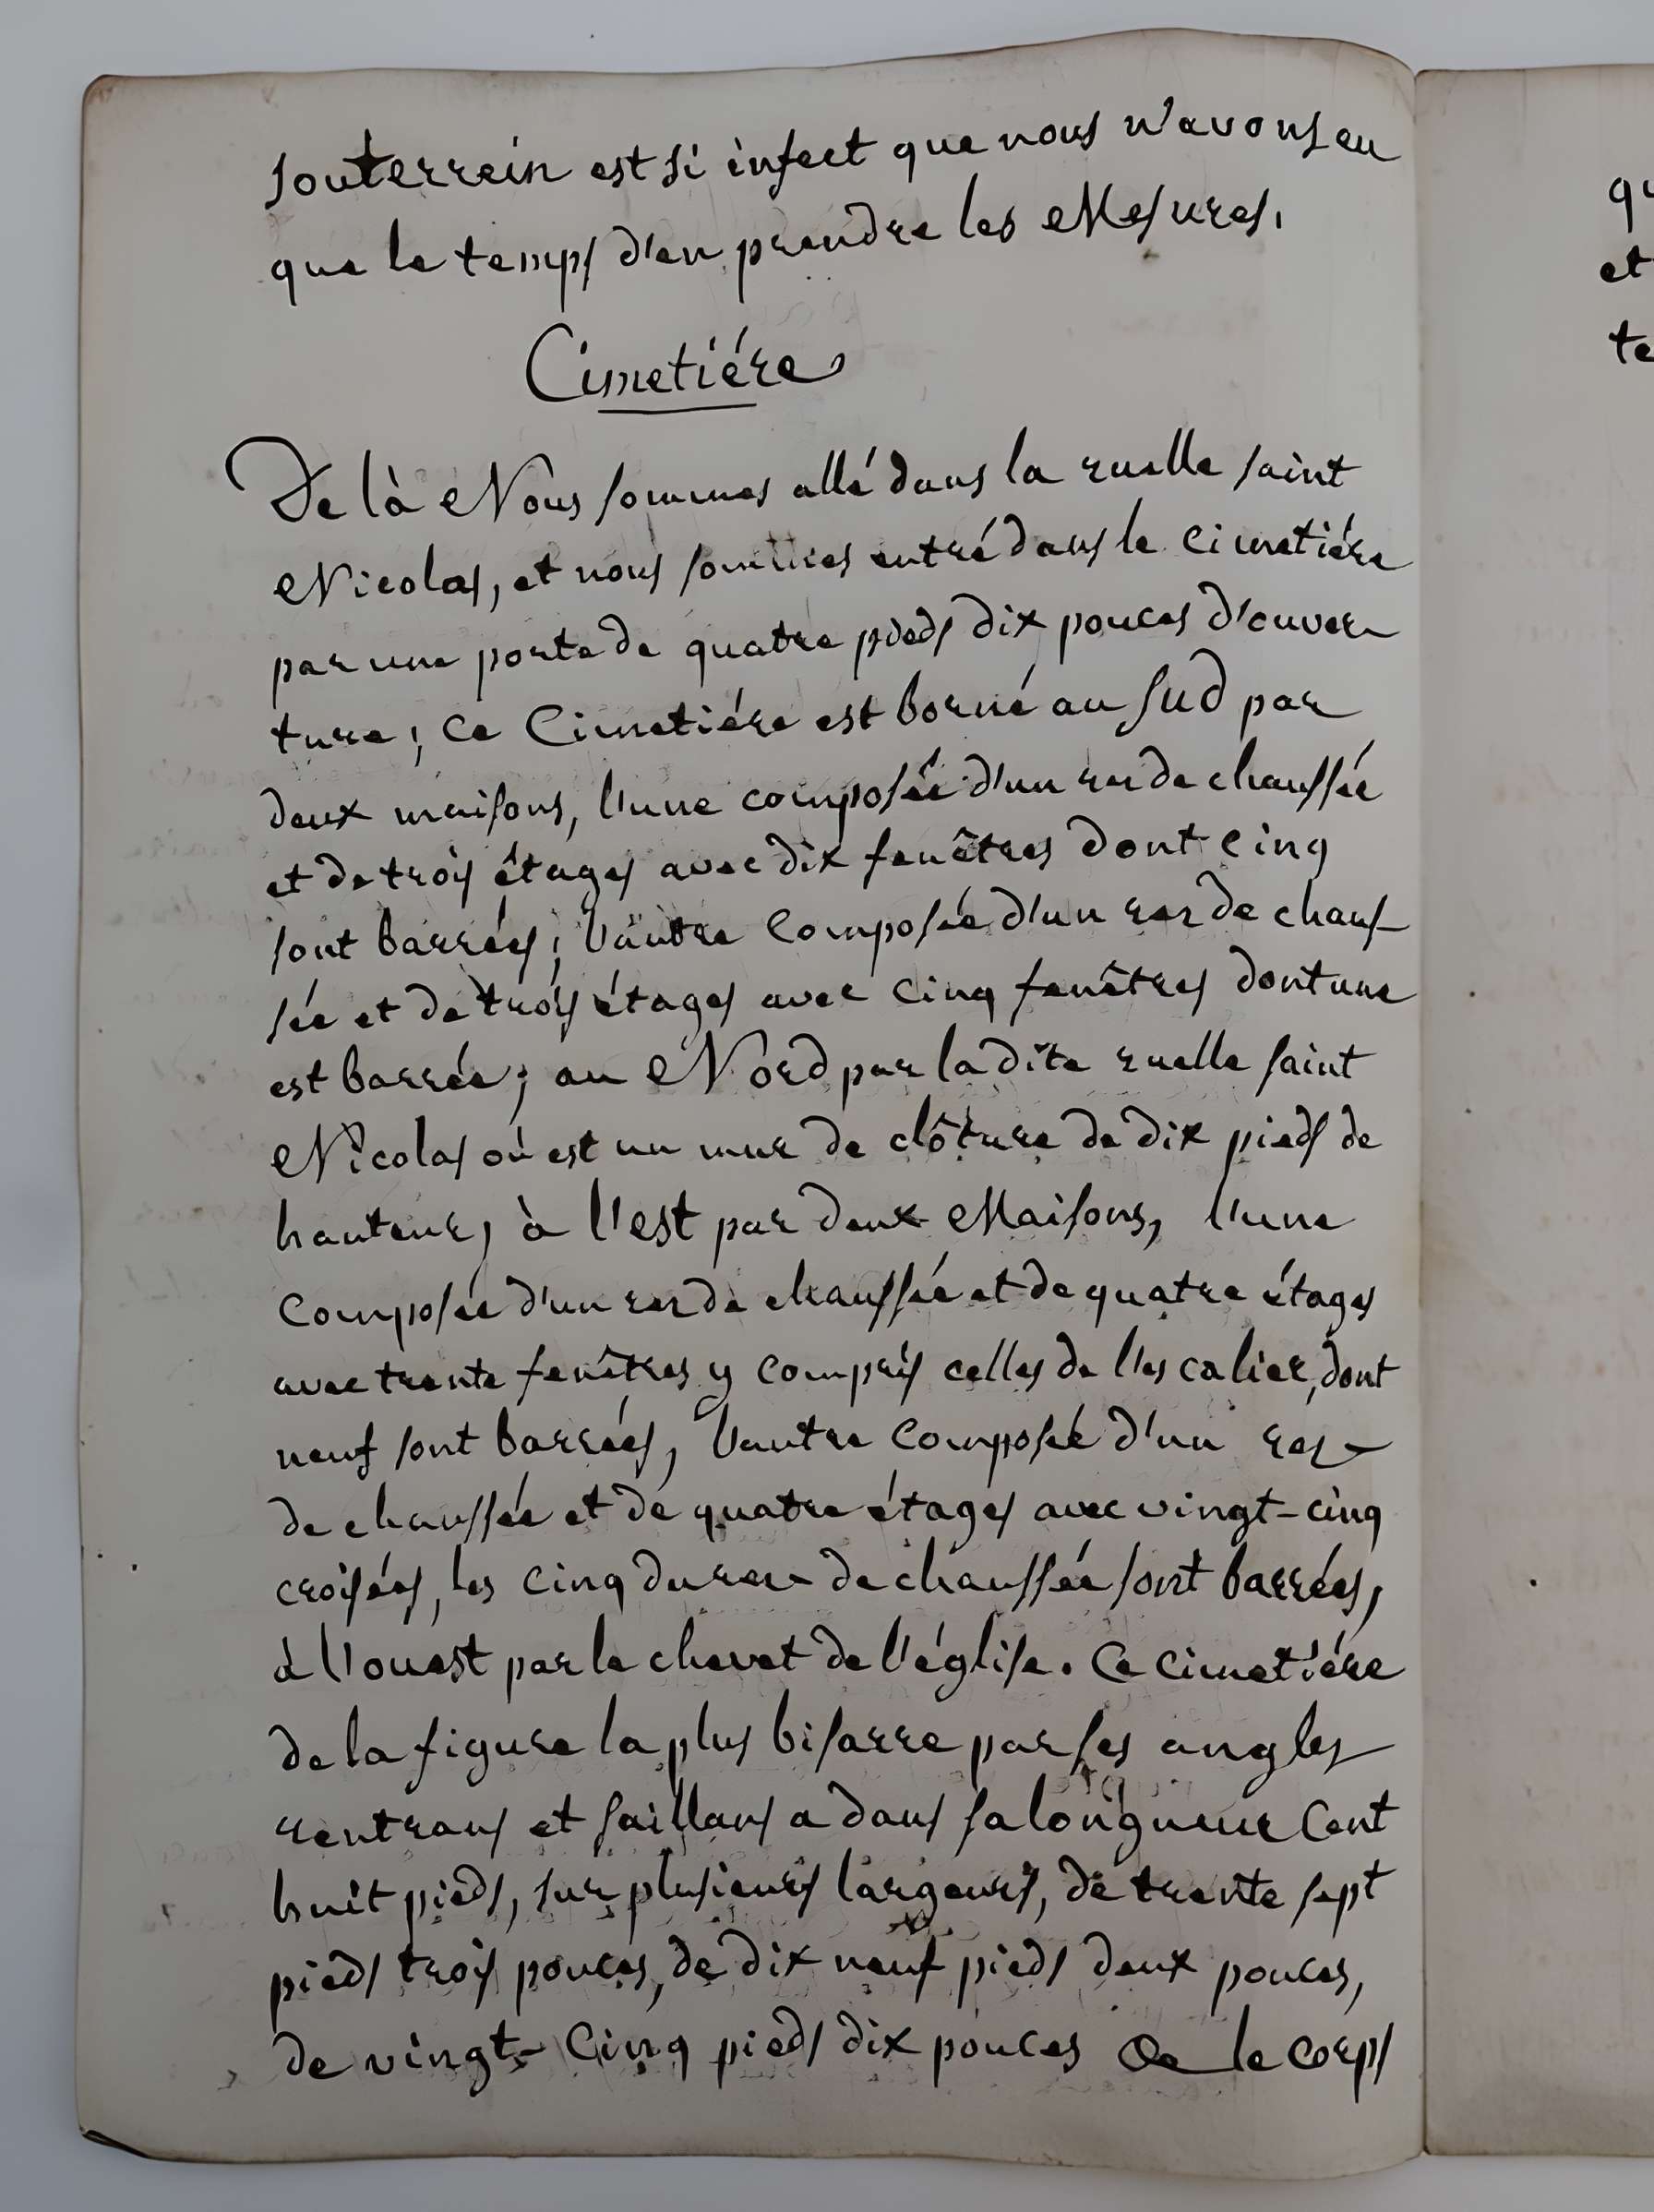 souterrein est si infect que nous n'avons eu
que le temps d'en prendre les Mesures.
Cimetiére
De là Nous sommes allé dans la ruelle saint
Nicolas, et nous sommes entré dans le cimetiére
par une porte de quatre pieds dix pouces d'ouver-
ture; ce Cimetiére est borné au sud par
deux maisons, l'une composée d'un rez de chaussée
et de trois étages avec dix fenêtres dont cinq
sont barrées; l'autre composée d'un rez de chaus-
sée et de trois étages avec cinq fenêtres dont une
est barrée; au Nord par la dite ruelle saint
Nicolas où est un mur de clôture de dix pieds de
hauteur, à l'est par deux Maisons, l'une
composée d'un rez de chaussée et de quatre étages
avec trente fenêtres y compris celles de l'escalier, dont
neuf sont barrées, l'autre composée d'un rez-
de chaussée et de quatre étages avec vingt-cinq
croisées, les cinq du rez- de chaussée sont barrées,
à l'ouest par le chevet de l'église. Ce cimetiére
de la figure la plus bisarre par ses angles
rentrans et saillans a dans sa longueur Cent
huit pieds, sur plusieurs largeurs, de trente sept
pieds trois pouces, de dix neuf pieds deux pouces,
de vingt-cinq pieds dix pouces le corps
qu
et
te